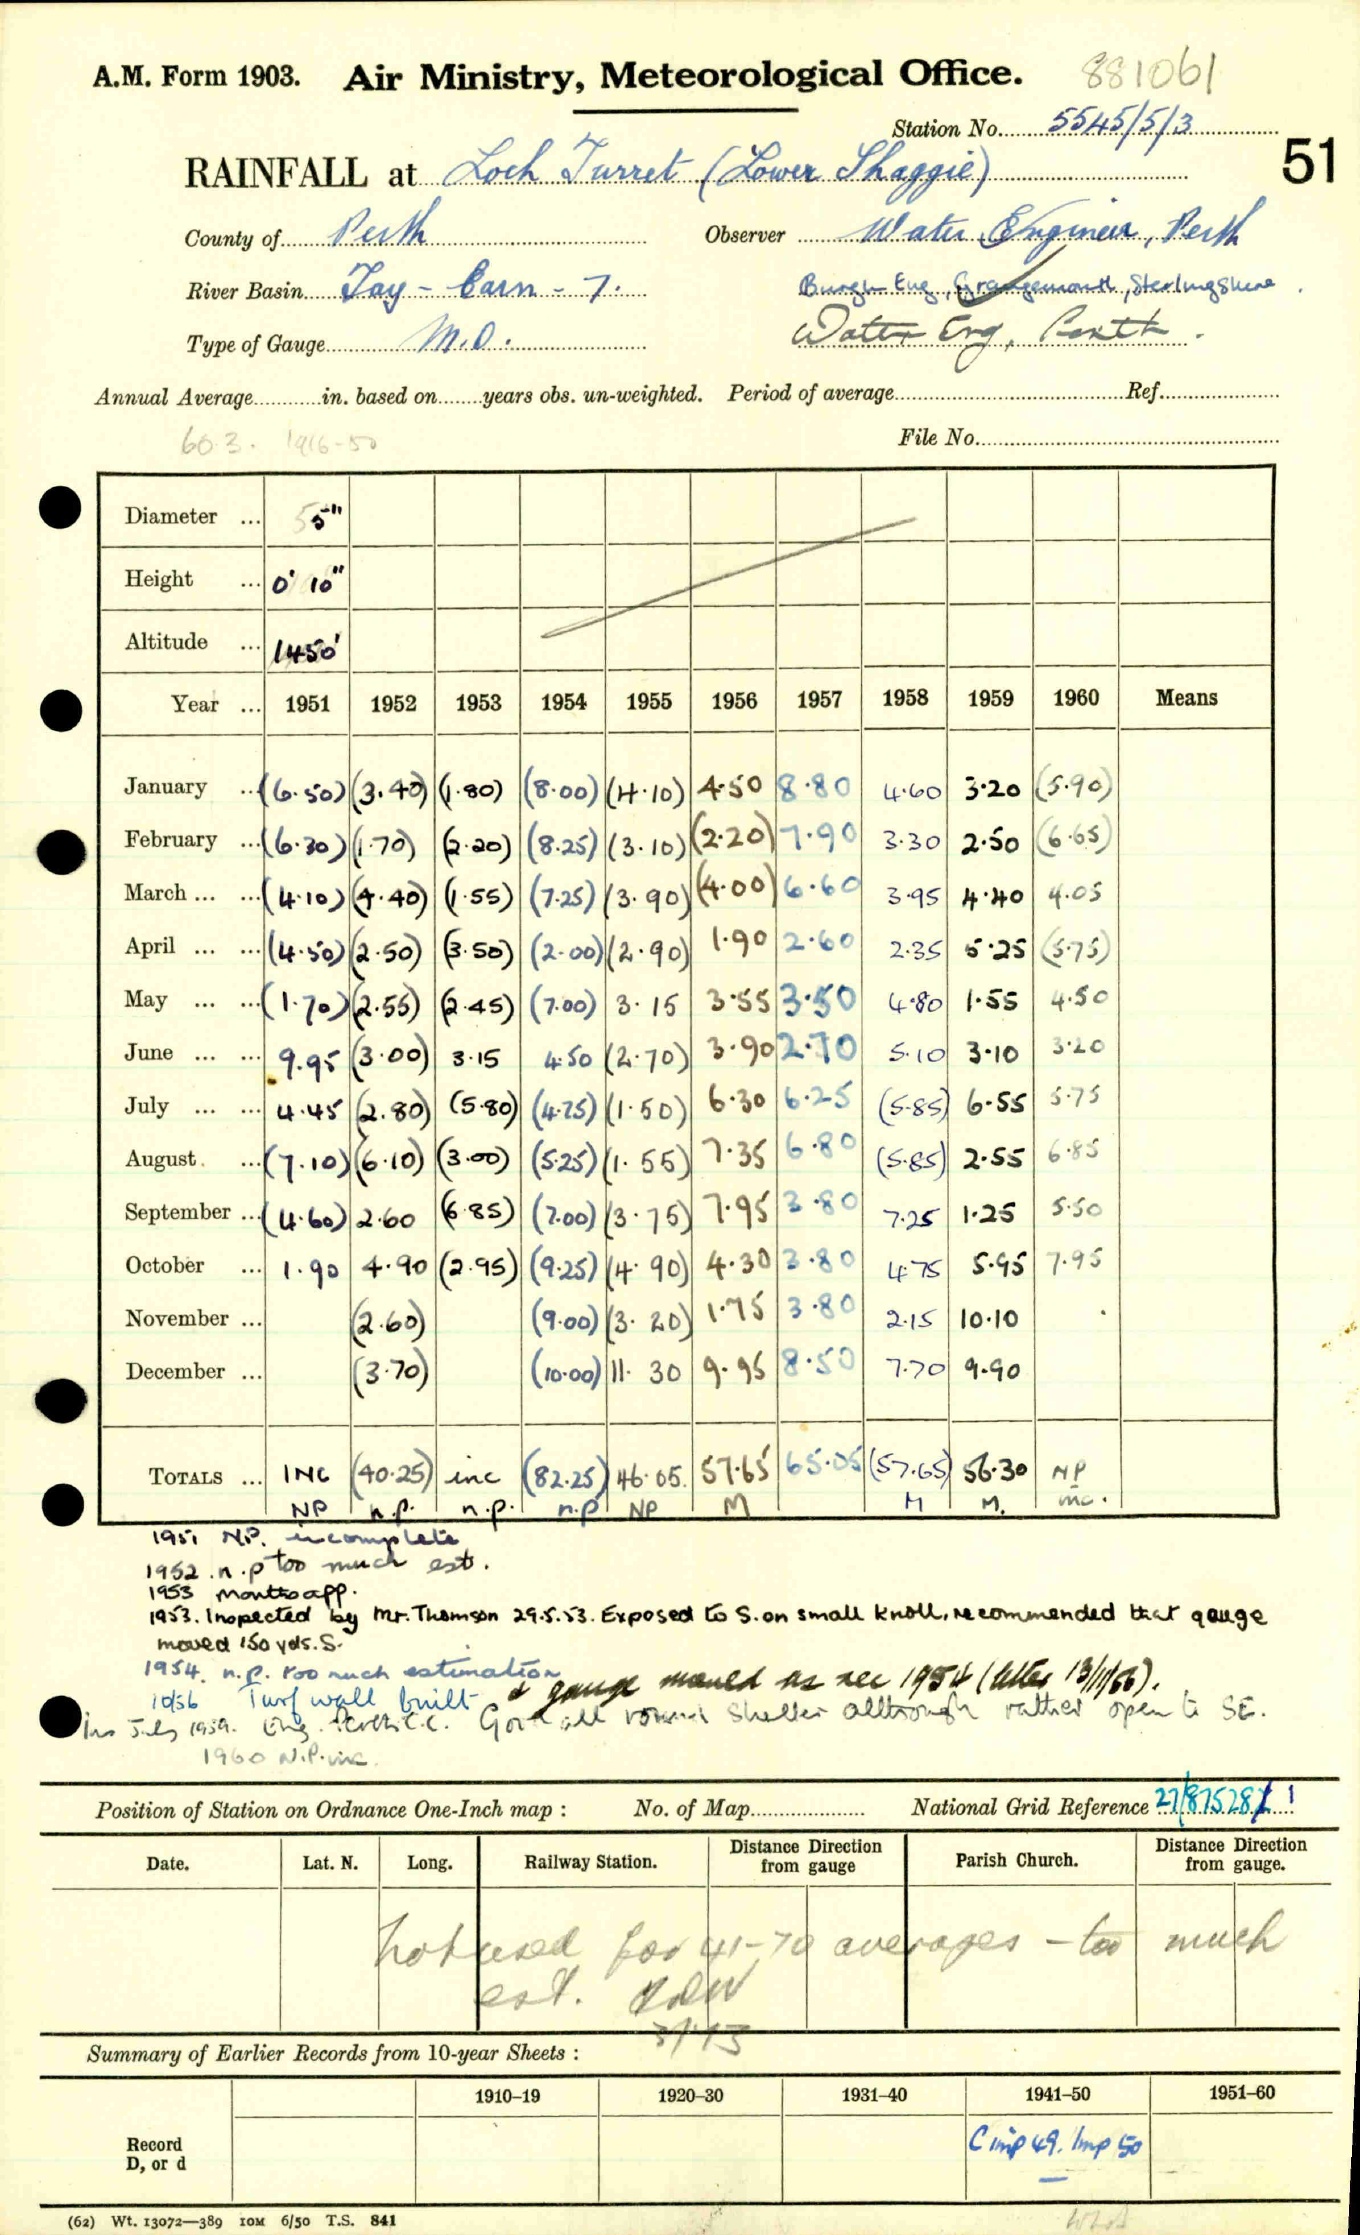 A.M. Form 1903. Air Ministry, Meteorological Office. 881061
Station No. 5545/5/3
51
RAINFALL at Loch Turret (Lower Shaggie)
County of Perth Observer Water Engineer, Perth
River Basin Tay - Earn - 7. Burgh Eng, Grangemouth, Sterlingshire.
Type of Gauge M.O. Water Eng, Perth.
Annual Average in. based on years obs. un-weighted. Period of average Ref.
60.3. 1916-50 File No.
Diameter ... 5"
Height ... 0' 10"
Altitude ... 1450'
Year ... 1951 1952 1953 1954 1955 1956 1957 1958 1959 1960 Means
January ... (6.50) (3.40) (1.80) (8.00) (4.10) 4.50 8.80 4.60 3.20 (5.90)
February ... (6.30) (1.70) (2.20) (8.25) (3.10) (2.20) 7.90 3.30 2.50 (6.65)
March ... ... (4.10) (4.40) (1.55) (7.25) (3.90) (4.00) 6.60 3.95 4.40 4.05
April ... ... (4.50) (2.50) (3.50) (2.00) (2.90) 1.90 2.60 2.35 5.25 (5.75)
May ... ... (1.70) (2.55) (2.45) (7.00) 3.15 3.55 3.50 4.80 1.55 4.50
June ... ... 9.95 (3.00) 3.15 4.50 (2.70) 3.90 2.70 5.10 3.10 3.20
July ... ... 4.45 (2.80) (5.80) (4.75) (1.50) 6.30 6.25 (5.85) 6.55 5.75
August ... (7.10) (6.10) (3.00) (5.25) (1.55) 7.35 6.80 (5.85) 2.55 6.85
September ... (4.60) 2.60 (6.85) (7.00) (3.75) 7.95 3.80 7.25 1.25 5.50
October ... 1.90 4.90 (2.95) (9.25) (4.90) 4.30 3.80 4.75 5.95 7.95
November ... (2.60) (9.00) (3.20) 1.75 3.80 2.15 10.10
December ... (3.70) (10.00) 11.30 9.95 8.50 7.70 9.90
TOTALS ... INC (40.25) inc (82.25) 46.05. 57.65 65.05 (57.65) 56.30 NP
NP n.p. n.p. n.p NP M M M. inc.
1951 N.P. incomplete
1952 n.p too much est.
1953 months app.
1953. Inspected by Mr. Thomson 29.5.53. Exposed to S. on small knoll, recommended that gauge
moved 150 yds. S.
1954. n.p. too much estimation
10/56 Turf wall built & gauge moved as rec 1954 (letter 13/11/56).
Ins July 1959. Eng. Perth C.C. Good all round shelter allthough rather open to SE.
1960 N.P. inc.
Position of Station on Ordnance One-Inch map : No. of Map National Grid Reference 27/875281
Date. Lat. N. Long. Railway Station. Distance Direction from gauge Parish Church. Distance Direction from gauge.
Not used for 41-70 averages - too much
est.
3/73
Summary of Earlier Records from 10-year Sheets :
1910–19 1920–30 1931–40 1941–50 1951–60
Record
D, or d
C imp 49. Imp 50
(62) Wt. 13072—389 10M 6/50 T.S. 841